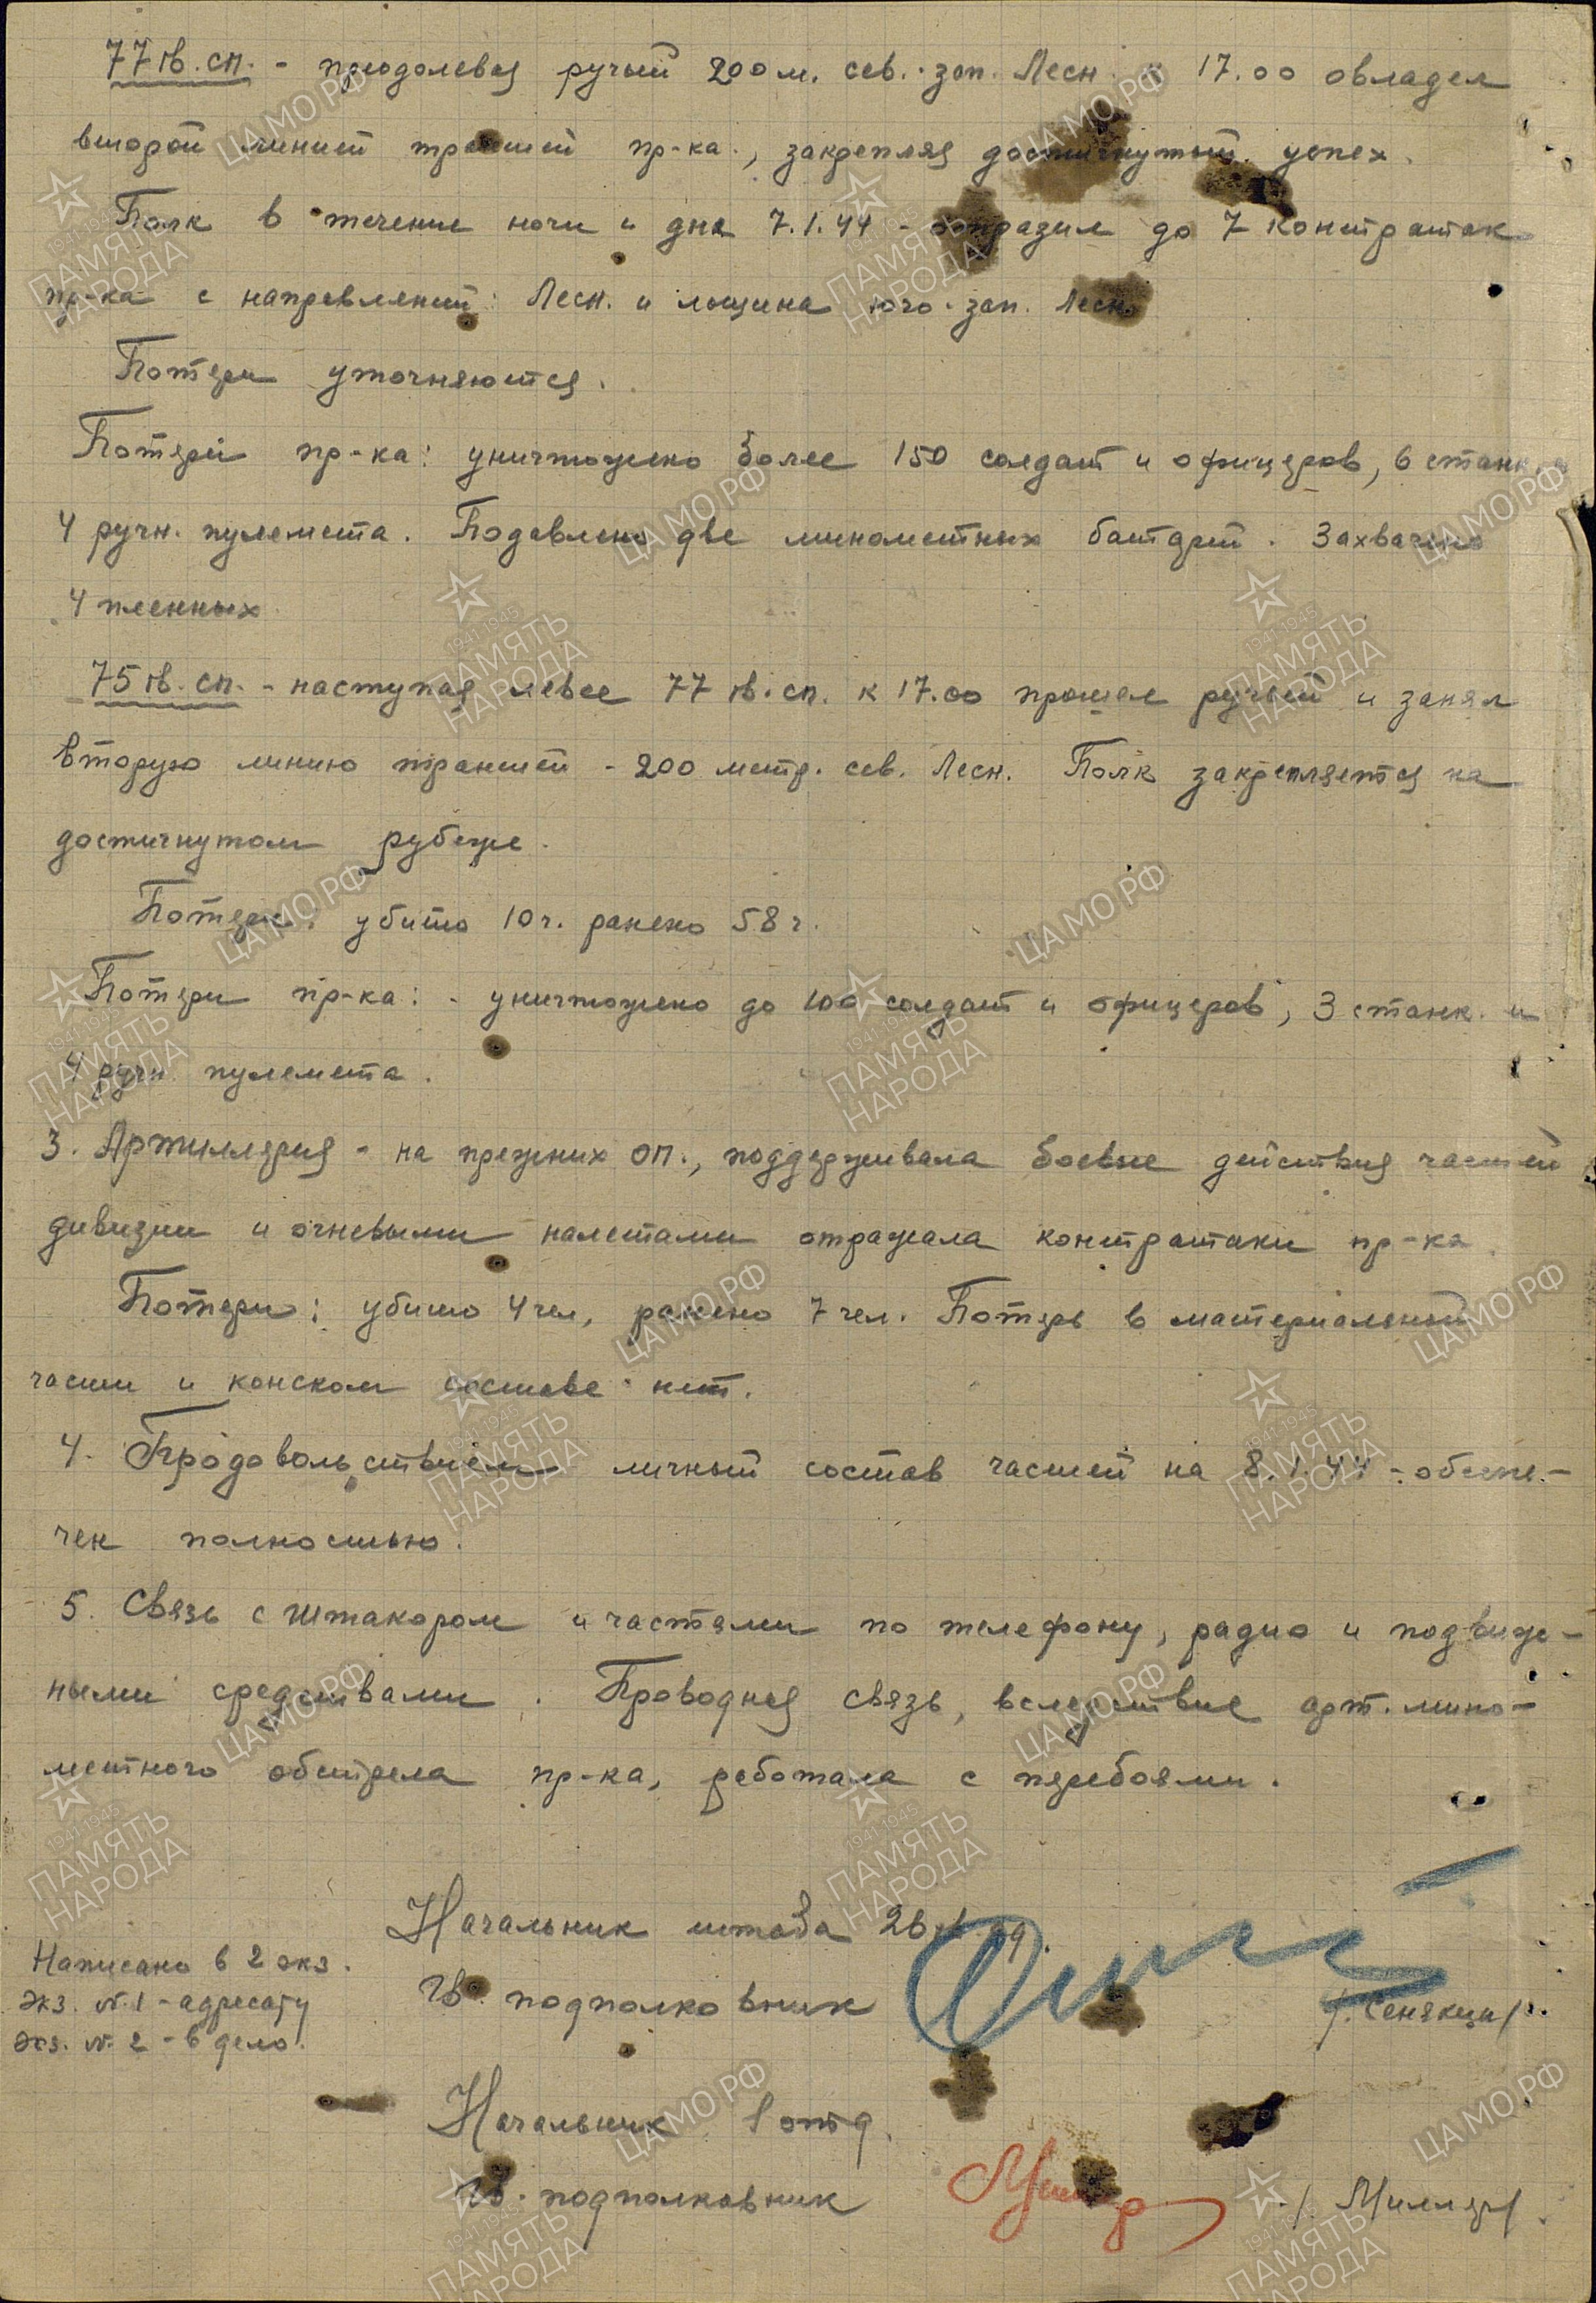 77 гв. сп. - преодолевая ручей 200 м. сев.-зап. Лесн. к 17.00 овладел
второй линией траншей пр-ка, закрепляя достигнутый успех.
Полк в течение ночи и дня 7.1.44 - отразил до 7 контратак
пр-ка с направлений: Лесн. и лощина юго-зап. Лесн.
Потери уточняются.
Потери пр-ка: уничтожено более 150 солдат и офицеров, 6 станк. и
4 ручн. пулемета. Подавлено две минометных батареи. Захвачено
4 пленных.
75 гв. сп. - наступая левее 77 гв. сп. к 17.00 прошел ручей и занял
вторую линию траншей - 200 метр. сев. Лесн. Полк закрепляется на
достигнутом рубеже.
Потери: убито 10 ч. ранено 58 ч.
Потери пр-ка: - уничтожено до 100 солдат и офицеров, 3 станк. и
4 ручн. пулемета.
3. Артиллерия - на прежних ОП., поддерживала боевые действия частей
дивизии и огневыми налетами отражала контратаки пр-ка.
Потери: убито 4 чел, ранено 7 чел. Потерь в материальной
части и конском составе нет.
4. Продовольствием личный состав частей на 8.1.44 - обеспе-
чен полностью.
5. Связь с штакором и частями по телефону, радио и подвиж-
ными средствами. Проводная связь, вследствие арт. мино-
метного обстрела пр-ка, работала с перебоями.
Начальник штаба 26 гв. сд.
Гв. подполковник /. Сенякин/.
Написано в 2 экз.
Экз. № 1 - адресату
Экз. № 2 - в дело.
Начальник 1 отд.
Гв. подполковник /. Миллер/.
ЦА МО РФ
1941-1945
ПАМЯТЬ
НАРОДА